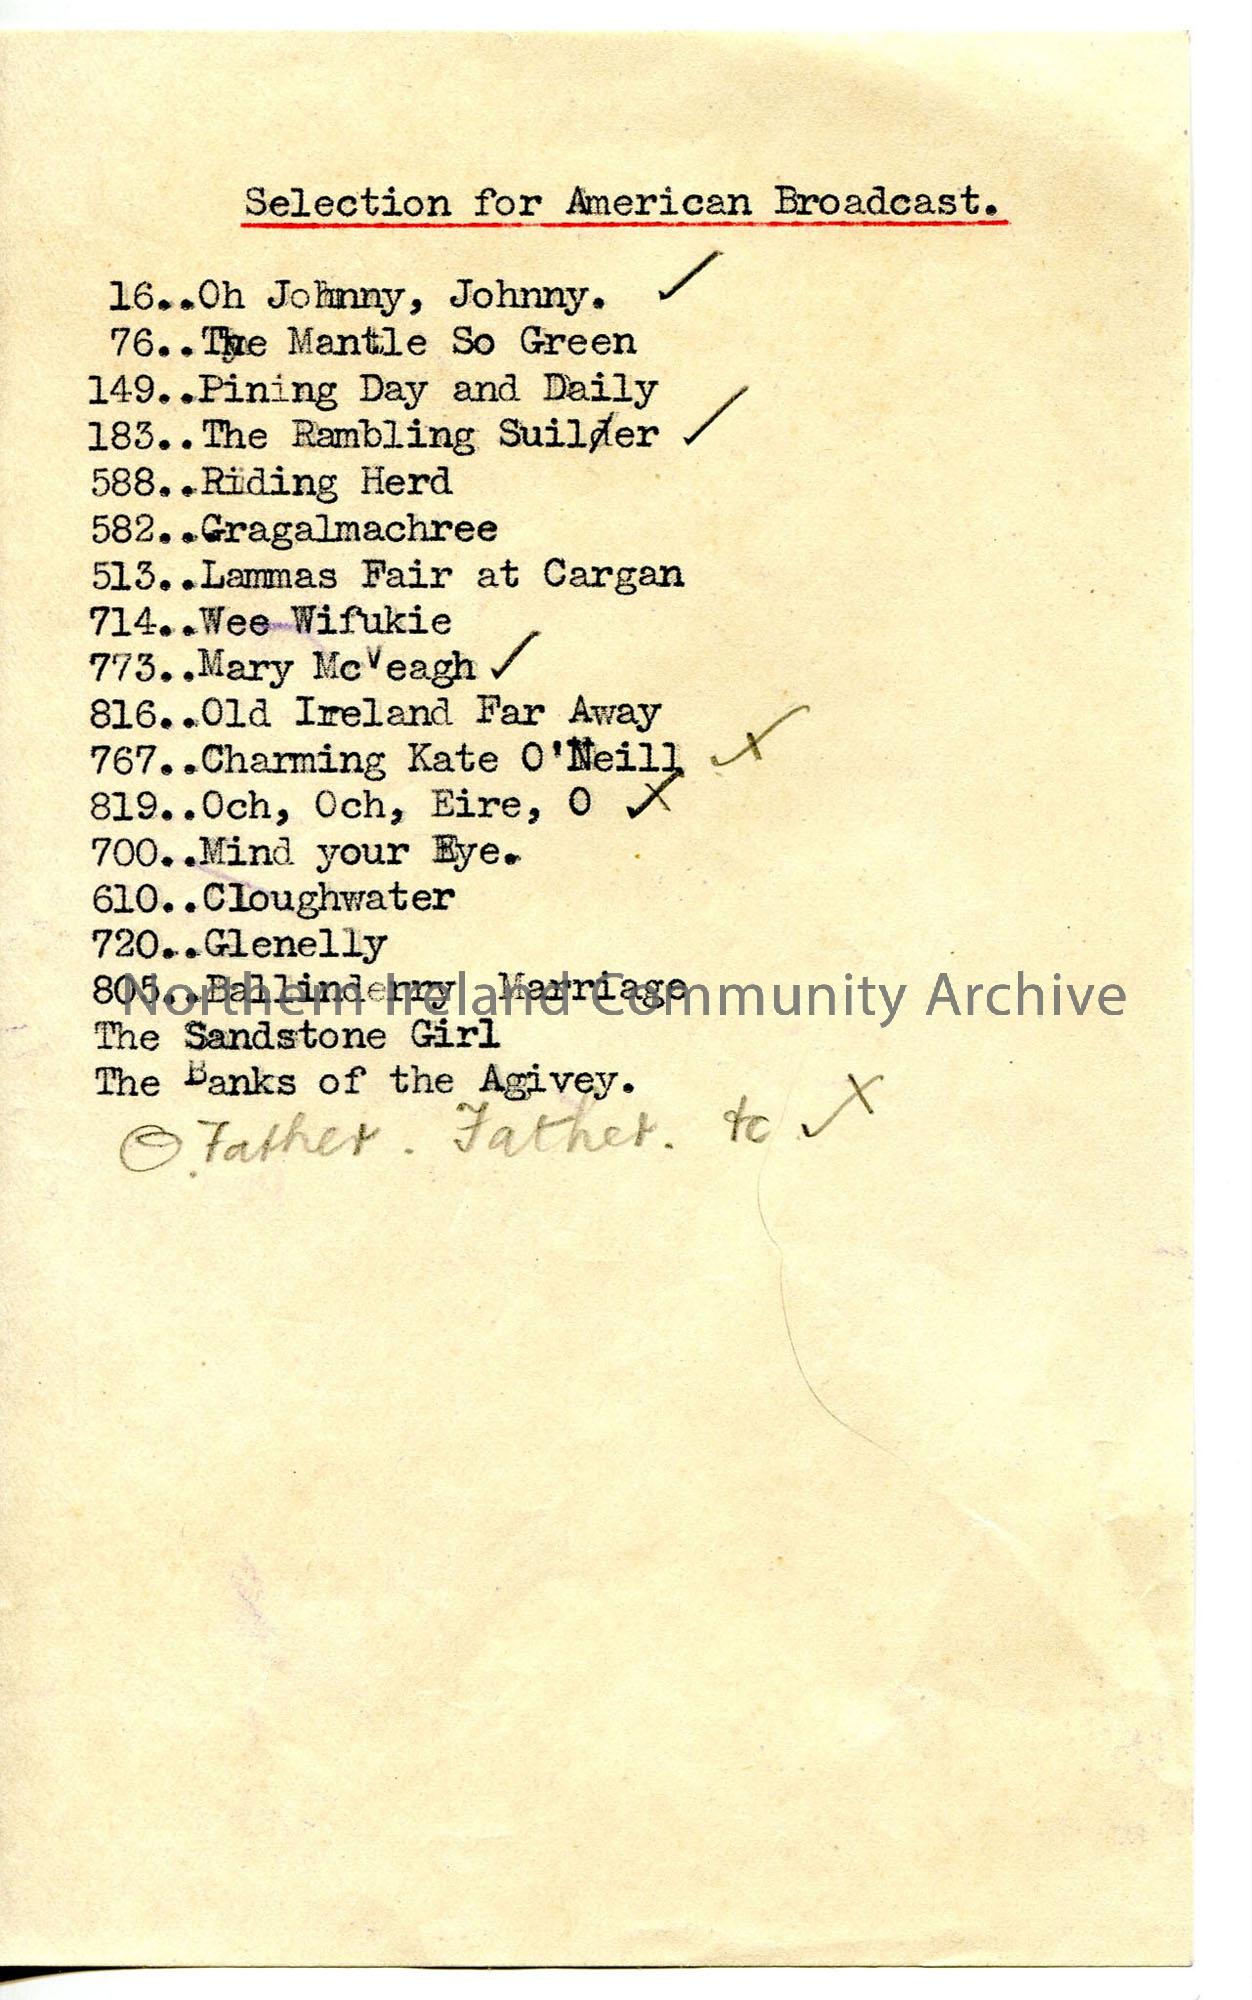 Selection for American Broadcast.
16..Oh Johnny, Johnny. ✓
76..The Mantle So Green
149..Pining Day and Daily
183..The Rambling Suiler ✓
588..Riding Herd
582..Gragalmachree
513..Lammas Fair at Cargan
714..Wee Wifukie
773..Mary McVeagh ✓
816..Old Ireland Far Away
767..Charming Kate O'Neill ✓ x
819..Och, Och, Eire, O ✓ x
700..Mind your Eye.
610..Cloughwater
720..Glenelly
805..Ballinderry Marriage
Northern Ireland Community Archive
The Sandstone Girl
The Banks of the Agivey.
Father. Father. ✓ x